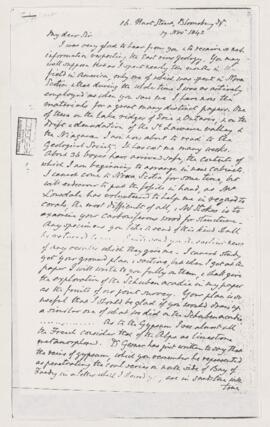 16. Hart Street, Bloomsbury Sq.
17 Nov. 1842
My dear Sir
I was very glad to hear from you & to receive so much
information respecting the coal over geology. You may
well suppose that as I spent nearly ten months in the
field in America, only one of which was spent in Nova
Scotia & that during the whole time I was as actively
employed as when you saw me I have now the
materials for a great many distinct papers. One
of these on the Lake ridges of Erie & Ontario, & on the
Drift & denudation of the St Lawrence valley &
the Niagara I am now about to read to the
Geological Society. It has cost me many weeks.
About 34 boxes have arrived safe, the contents of
which I am beginning to arrange in new cabinets.
I cannot come to Nova Scotia for some time, but
will endeavor to send the fossils in hand, as Mr
Lonsdale has volunteered to help me in regard to
corals, the most difficult of all, & Mr Stokes is to
examine your carboniferous wood for structure.
Any specimens you take & send of this kind shall
be
of any results which they give me. I cannot study
yet your ground plan & sections, but when I get at the
paper I will write to you fully on them, & shall give
the exploration of the Schubenacadie in my paper
as the fruits of our joint survey. Your plan is so
useful that I should be glad if you would draw up
a similar one of what we did on the Schubenacadie
As to the Gypsum I was almost all
the French consider that of the Alps as limestone
metamorphosed. Dr Gesner has just written to say that
the veins of gypsum, which you remember he represented
as penetrating the coal series on north side of Bay of
Fundy in a letter which I